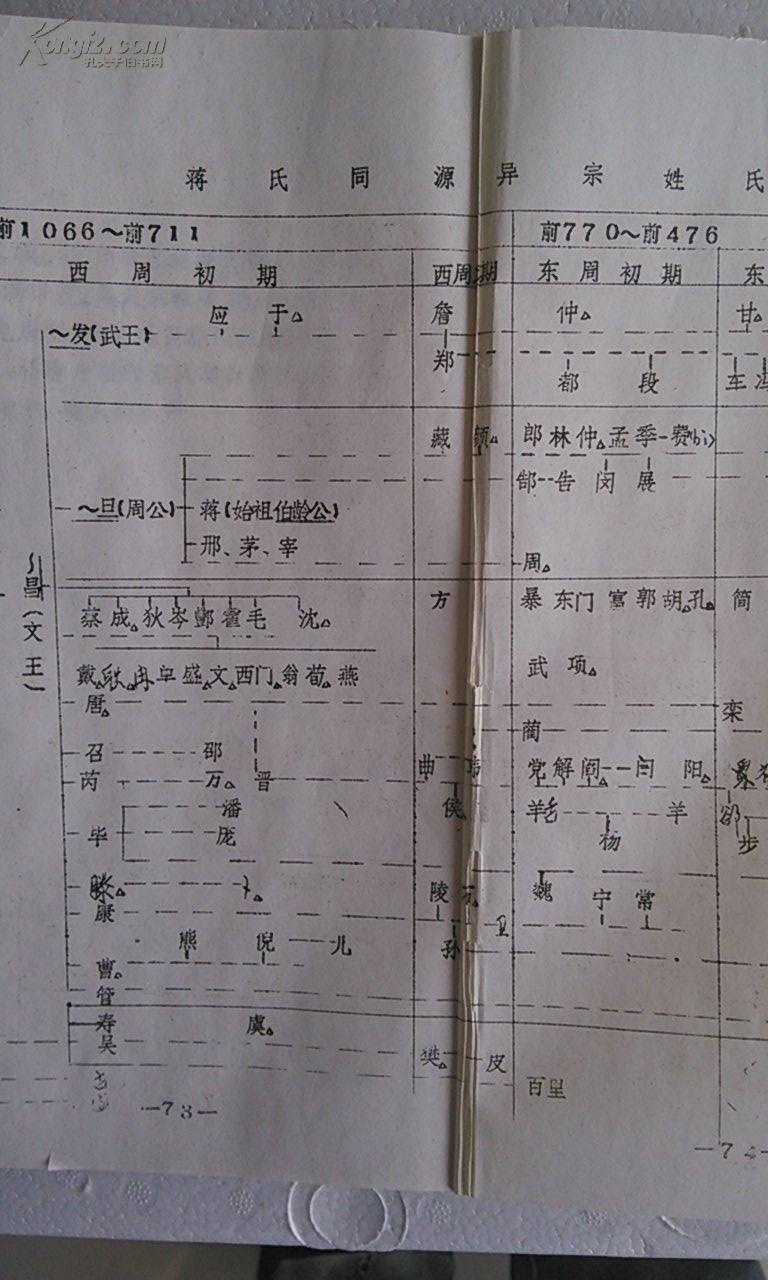 Kongfz.com
孔夫子旧书网
蒋氏同源异宗姓氏
前1066～前711 前770～前476
西周初期 西周 期 东周初期 东
应 于△ 詹 仲△ 甘△
～发(武王)
郑 都 段 车 冯
藏 颜△ 郎 林 仲△ 孟 季-费(bi)
郜--告 闵 展
～旦(周公) 蒋(始祖伯龄公)
邢、茅、宰
周△
～昌(文王)
蔡 成△ 狄 岑 酆 霍 毛 沈△ 方 暴 东门 富 郭 胡△ 孔△ 简
戴△ 耿△ 冉 单 盛△ 文△ 西门△ 翁 荀△ 燕 武 项△
唐△ 栾
蔺
召 邵
芮 万△ 晋 曲 党 解 阎△ 闫 阳△
潘 侯 羊 郤
毕 庞 杨 步
滕△ 陵 魏 宁 常
康 卫
熊 倪 儿 孙
曹△
管
寿 虞△
吴 樊△ 皮
百里
—73—
—74—